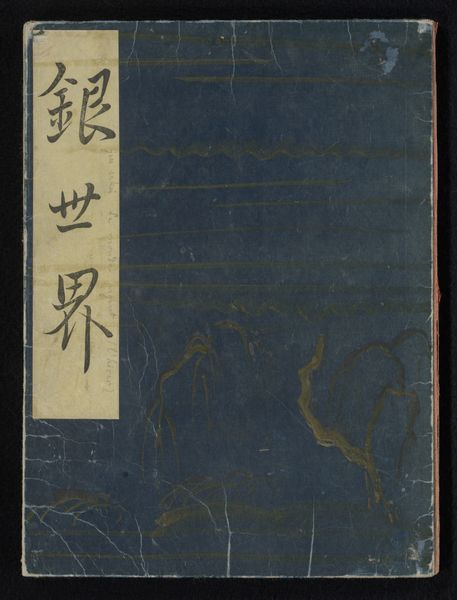 銀世界